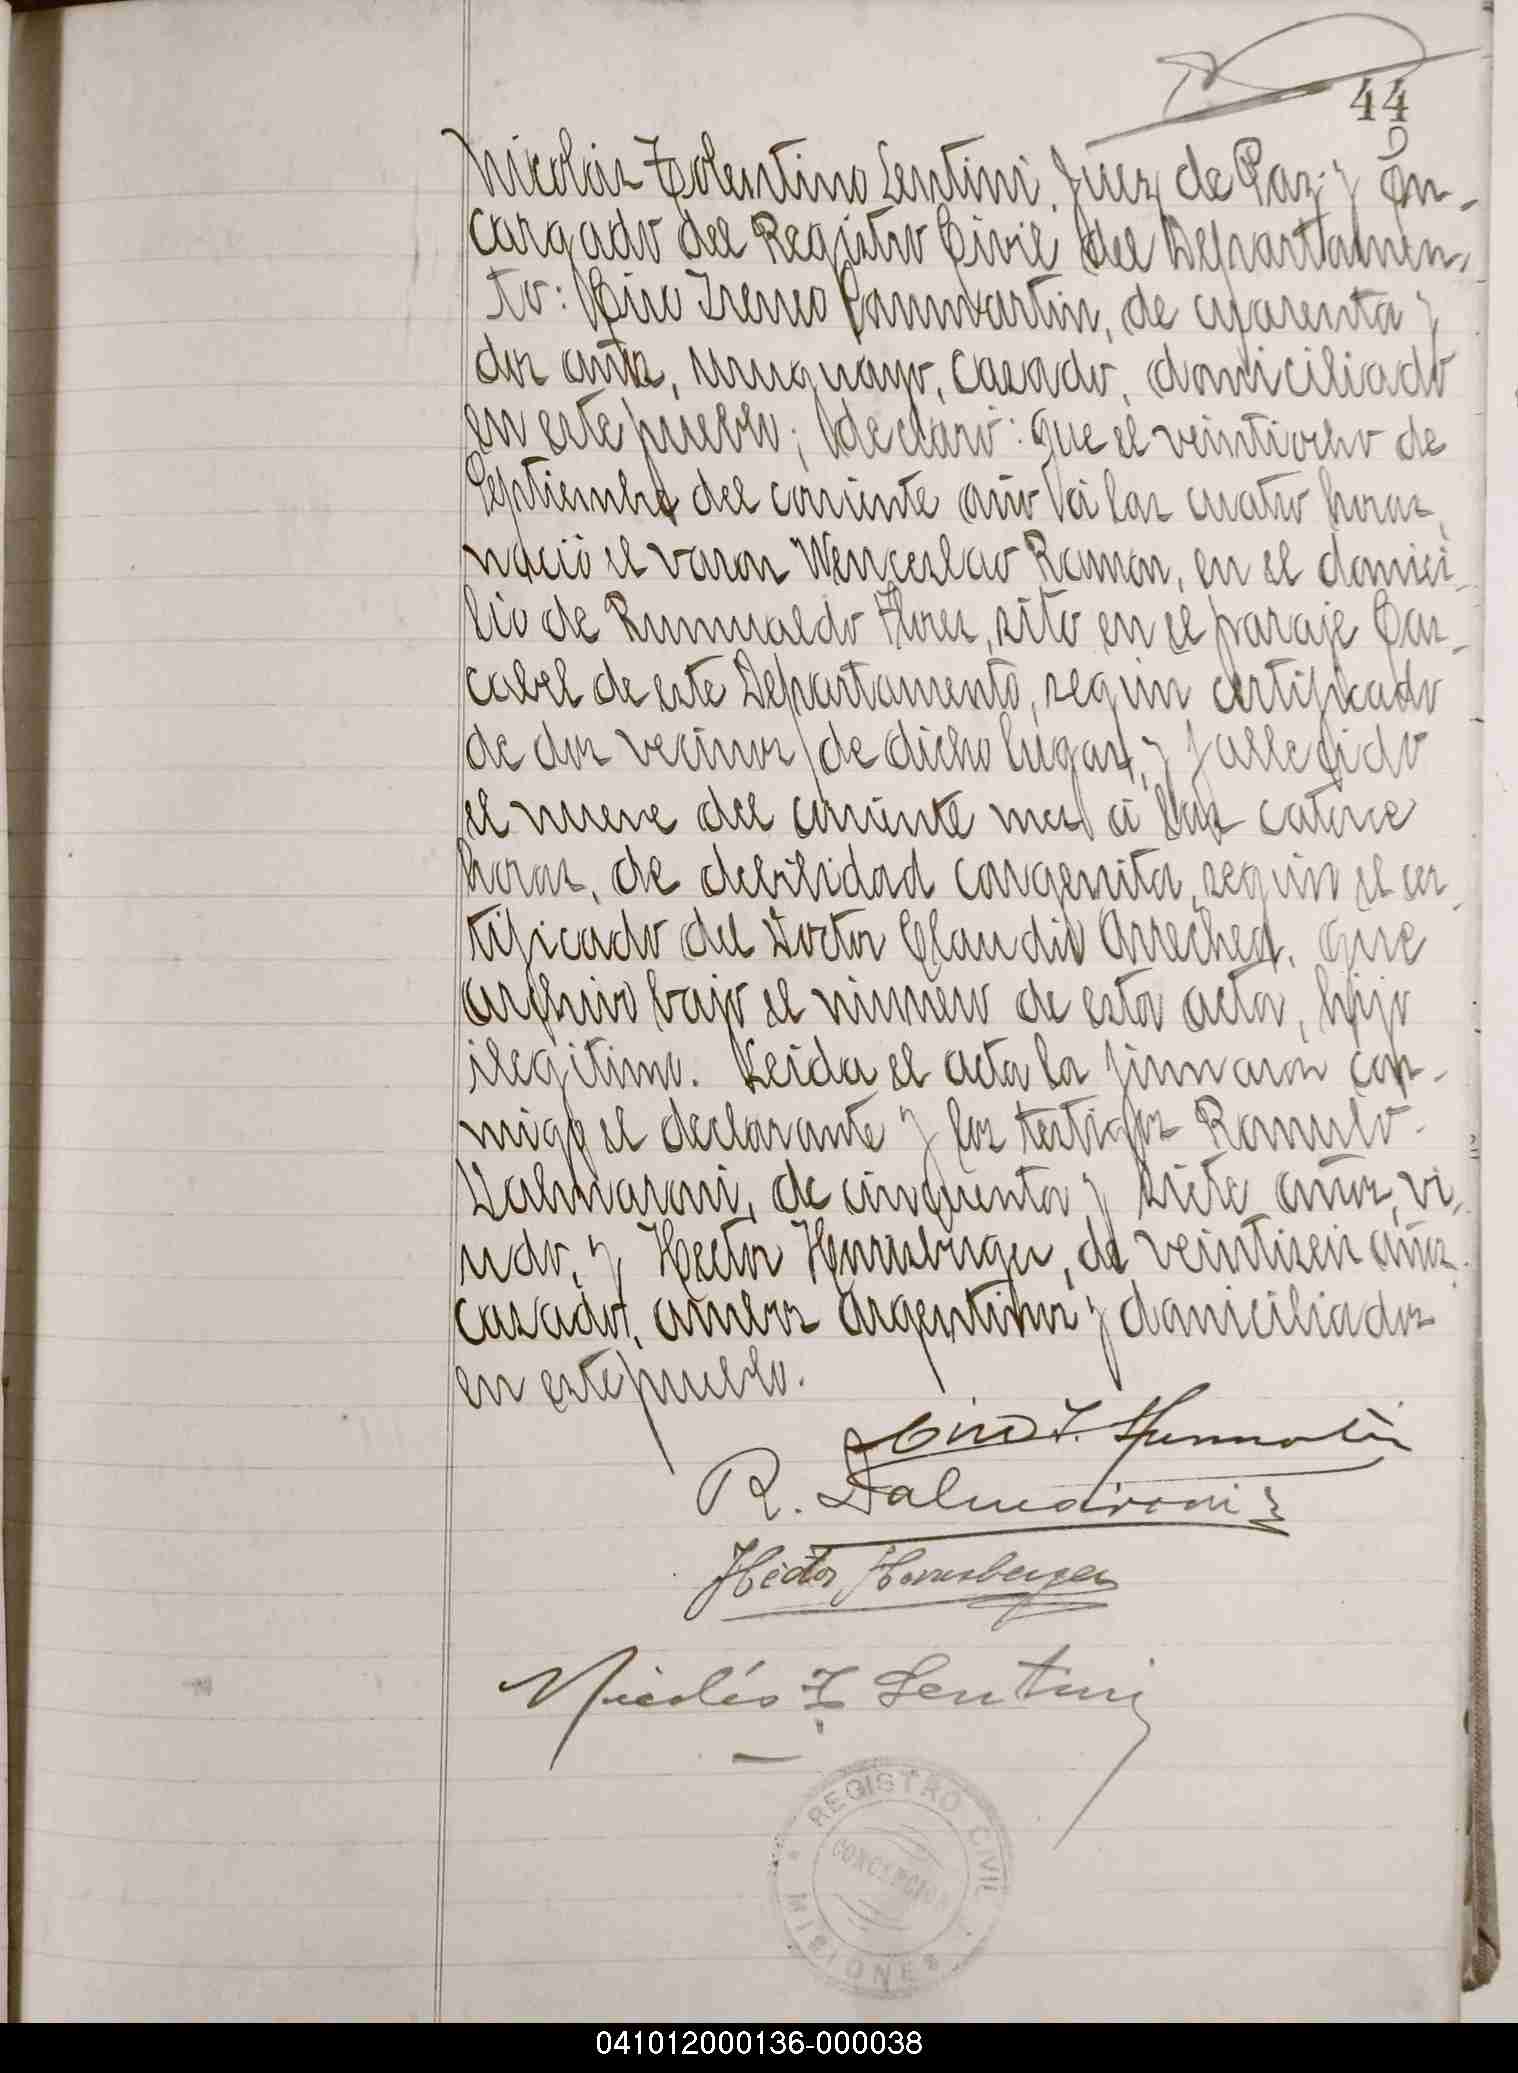 44
Nicolás Tolentino Lentini, Juez de Paz y En-
cargado del Registro Civil del Departamen-
to: Ciro Ireneo, de cuarenta y
dos años, uruguayo, casado, domiciliado
en este pueblo; declaró: Que el veintiocho de
Septiembre del corriente año á las cuatro horas,
nació el varon Wenceslao Ramón, en el domici-
lio de Rumualdo Flores, sito en el paraje Cas-
cabel de este Departamento, según certificado
de dos vecinos de dicho lugar, y fallecido
el nueve del corriente mes á las catorce
horas, de debilidad congenita, según el cer-
tificado del Doctor Claudio Arrechea, que
archivo bajo el número de esta acta, hijo
ilegitimo. Leida el acta la firmaron con-
migo el declarante y los testigos Romulo
Dalmaroni, de cincuenta y siete años, vi-
udo, y Hector Hornsberger, de veintiseis años
casado, ambos argentinos y domiciliados
en este pueblo.
Ciro I.
R. Dalmaroni
Héctor Hornsberger
Nicolás T. Lentini
REGISTRO CIVIL
CONCEPCION
MISIONES
041012000136-000038